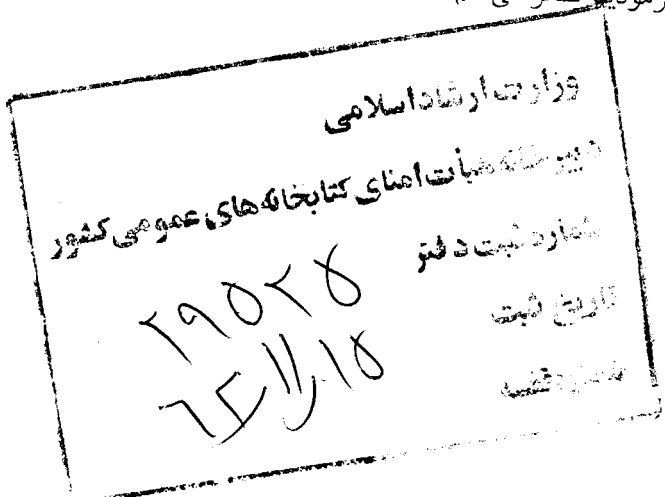 وزارت ارشاد اسلامی
دبیرخانه هیأت امنای کتابخانه‌های عمومی کشور
شماره ثبت دفتر ۲۹۵۲۵
تاریخ ثبت ۶۴/۱۱/۱۵
شماره قفسه